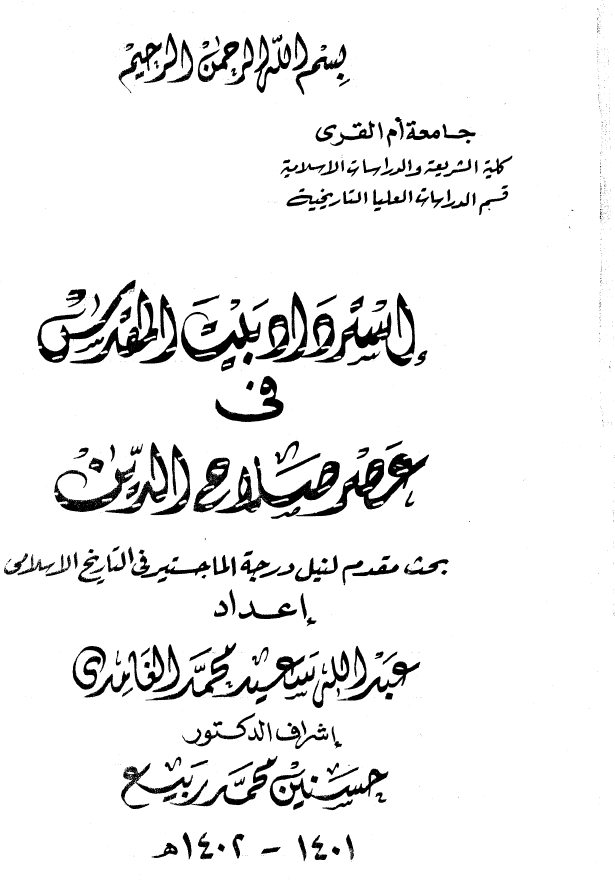 بسم الله الرحمن الرحيم
جامعة أم القرى
كلية الشريعة والدراسات الاسلامية
قسم الدراسات العليا التاريخية
إسترداد بيت المقدس
فى
عصر صلاح الدين
بحث مقدم لنيل درجة الماجستير فى التاريخ الاسلامى
إعداد
عبد الله سعيد محمد الغامدى
إشراف الدكتور
حسنين محمد ربيع
١٤٠١ - ١٤٠٢ه